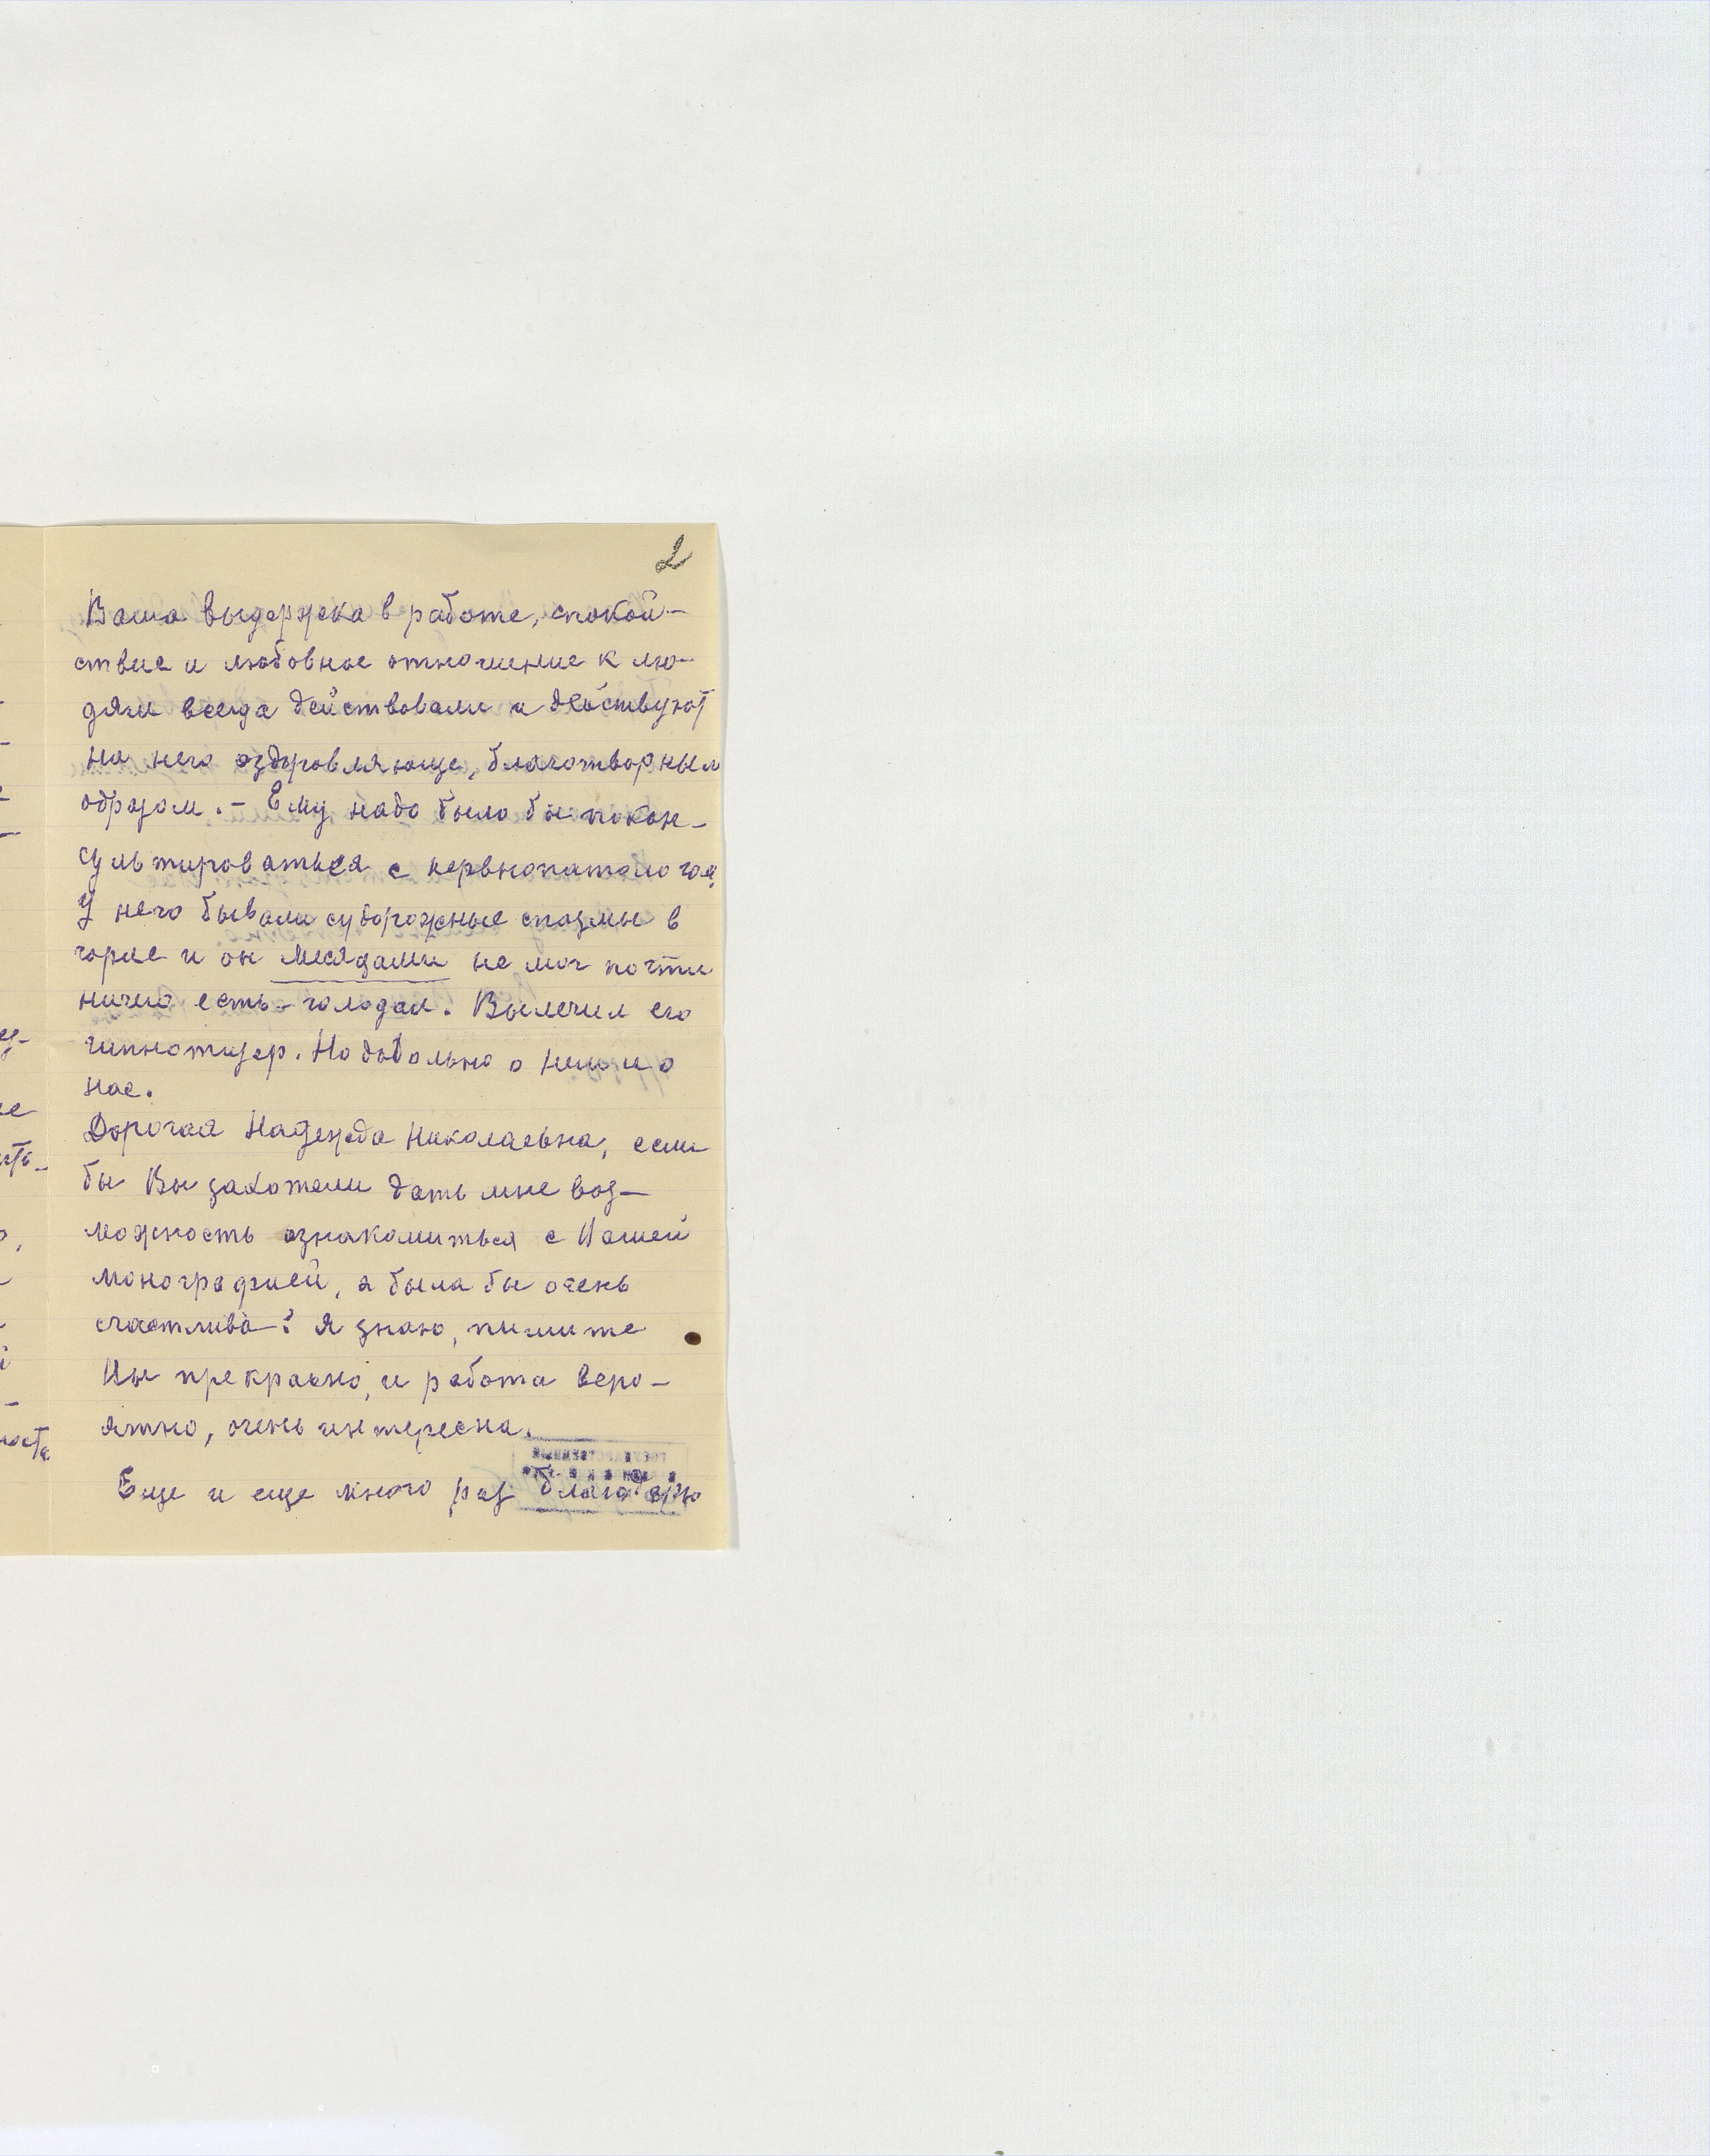 2
Ваша выдержка в работе, спокой-
ствие и любовное отношение к лю-
дям всегда действовали и действуют
на него оздоровляюще, благотворным
образом. - Ему надо было бы покон-
сультироваться с нервнопатологом,
У него бывали судорожные спазмы в
горле и он месяцами не мог почти
ничего есть - голодал. Вылечил его
гипнотизер. Но довольно о нем и о
нас.
Дорогая Надежда Николаевна, если
бы Вы захотели дать мне воз-
можность ознакомиться с Вашей
монографией, я была бы очень
счастлива! Я знаю, пишите
Вы прекрасно, и работа веро-
ятно, очень интересна.
Еще и еще много раз благодарю